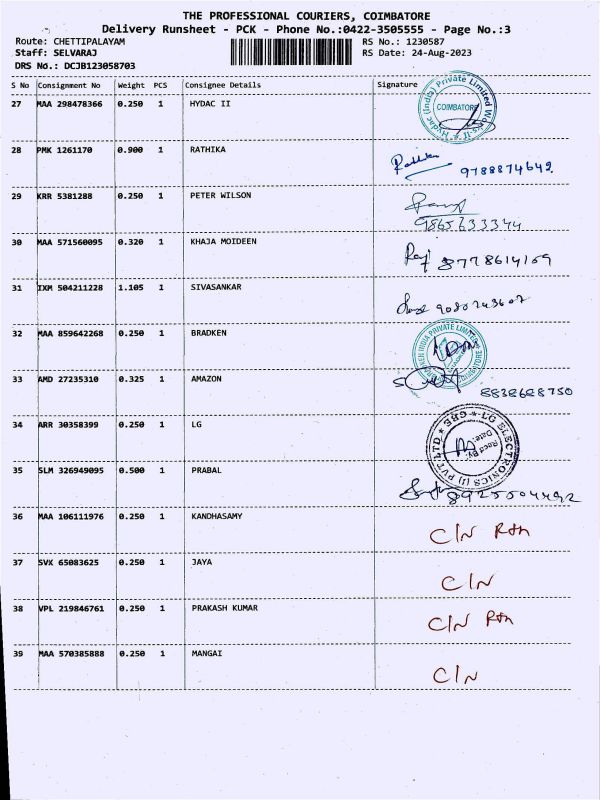 THE PROFESSIONAL COURIERS, COIMBATORE
Delivery Runsheet - PCK - Phone No.:0422-3505555 - Page No.:3
Route: CHETTIPALAYAM RS No.: 1230587
Staff: SELVARAJ RS Date: 24-Aug-2023
DRS No.: DCJB123058703
S No Consignment No Weight PCS Consignee Details Signature
27 MAA 298478366 0.250 1 HYDAC II Hydac (India) Private Limited COIMBATORE
28 PMK 1261170 0.900 1 RATHIKA 9788874642
29 KRR 5381288 0.250 1 PETER WILSON
30 MAA 571560095 0.320 1 KHAJA MOIDEEN Raj 8778614159
31 IXM 504211228 1.105 1 SIVASANKAR
32 MAA 859642268 0.250 1 BRADKEN BRADKEN INDIA PRIVATE LIMITED COIMBATORE
33 AMD 27235310 0.325 1 AMAZON 8838688750
34 ARR 30358399 0.250 1 LG LG ELECTRONICS (I) PVT LTD Recd By: Date:
35 SLM 326949095 0.500 1 PRABAL
36 MAA 106111976 0.250 1 KANDHASAMY C/N Rtn
37 SVK 65083625 0.250 1 JAYA C/N
38 VPL 219846761 0.250 1 PRAKASH KUMAR C/N Rtn
39 MAA 570385888 0.250 1 MANGAI C/N